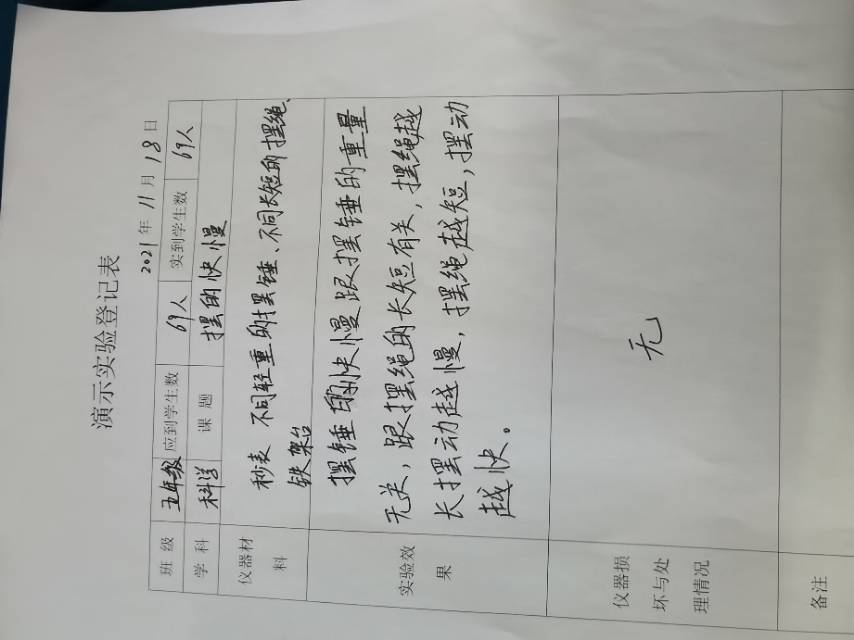 演示实验登记表
2021年 11月 18日
班级 五年级 应到学生数 69人 实到学生数 69人
学科 科学 课题 摆的快慢
仪器材料 秒表 不同轻重的摆锤、不同长短的摆绳、
铁架台
实验效果 摆锤的快慢跟摆锤的重量
无关，跟摆绳的长短有关，摆绳越
长摆动越慢，摆绳越短，摆动
越快。
仪器损坏与处理情况 无
备注